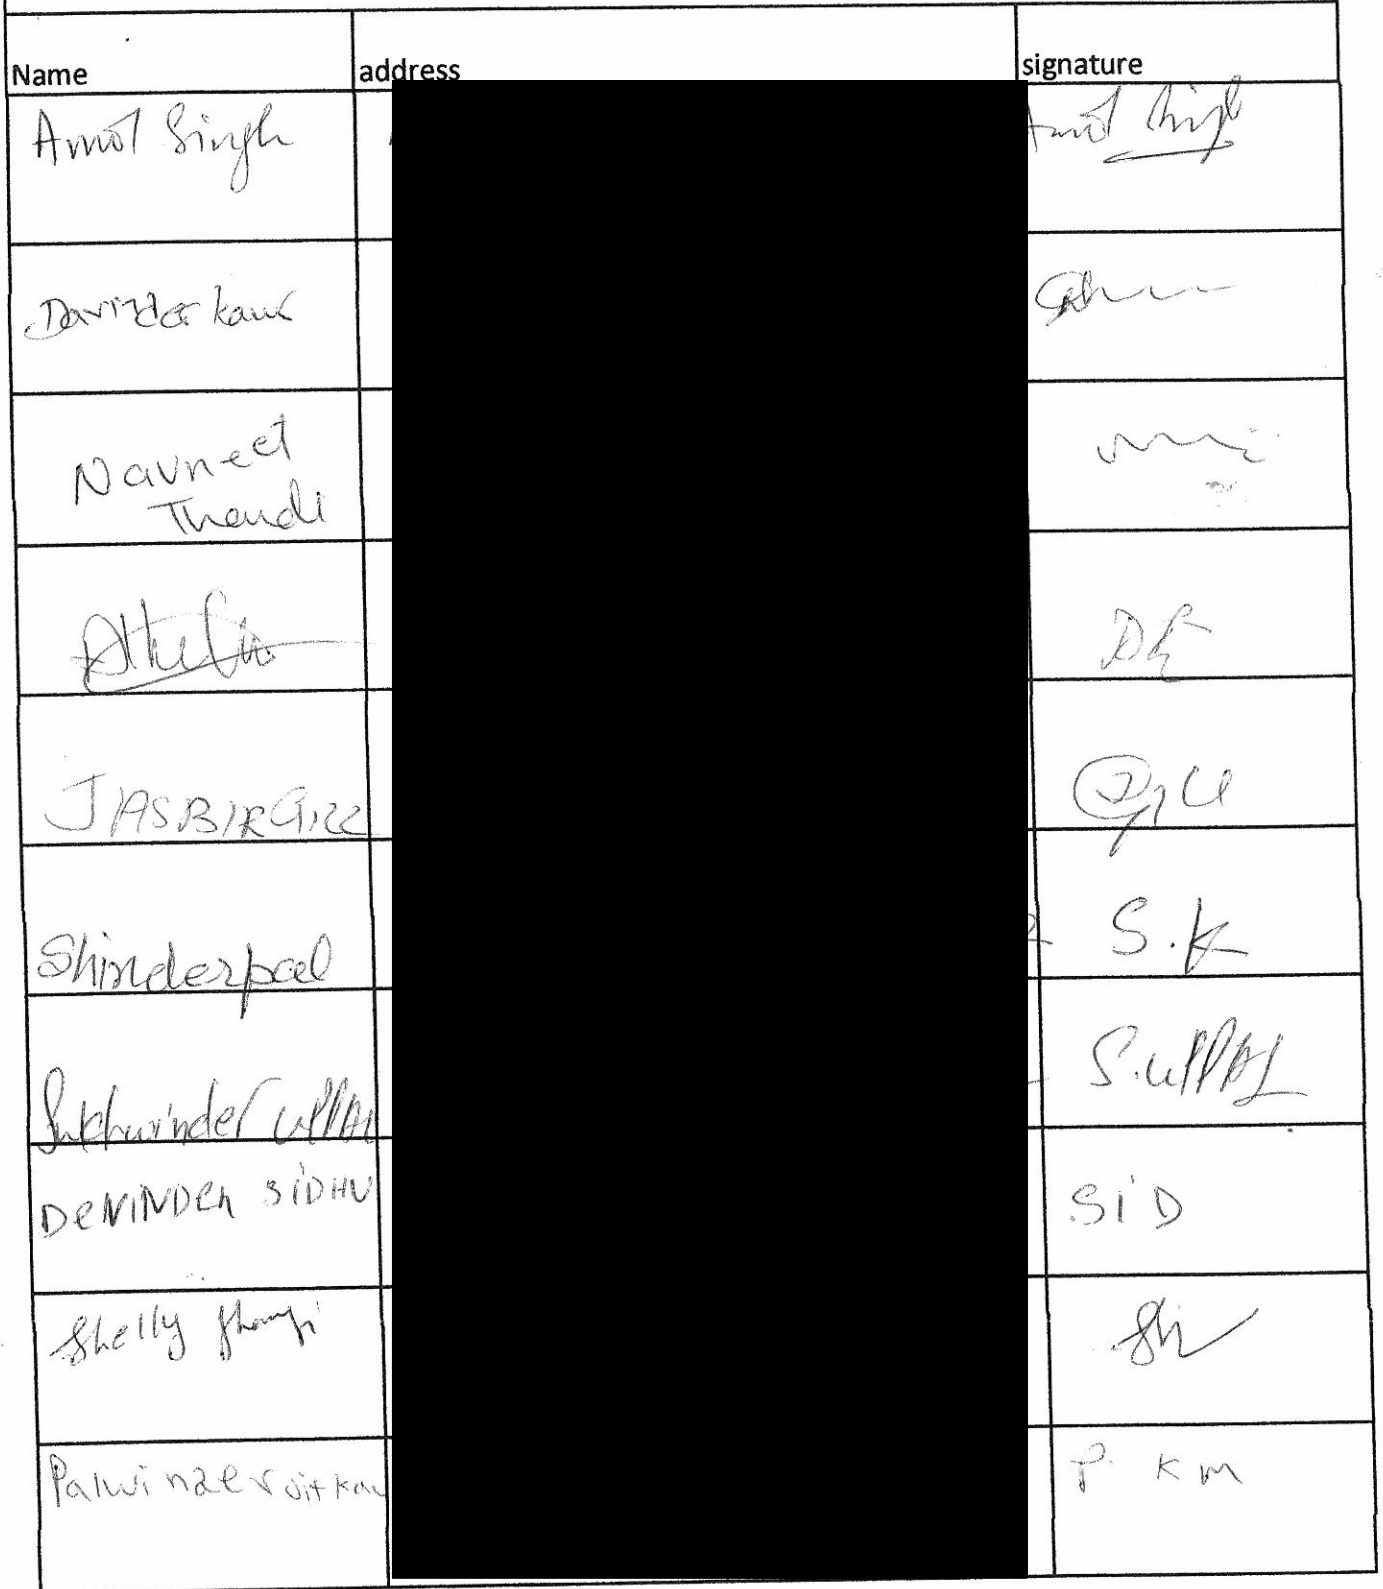 Name address signature
Amot Singh Amot Singh
Davinder kaur
Navneet
Thandi
JASBIR GILL
Shinderpal S.K
Sukhwinder UPPAL S.UPPAL
DEVINDER SIDHU SID
Shelly
Palwinder Jit Kau P. K m